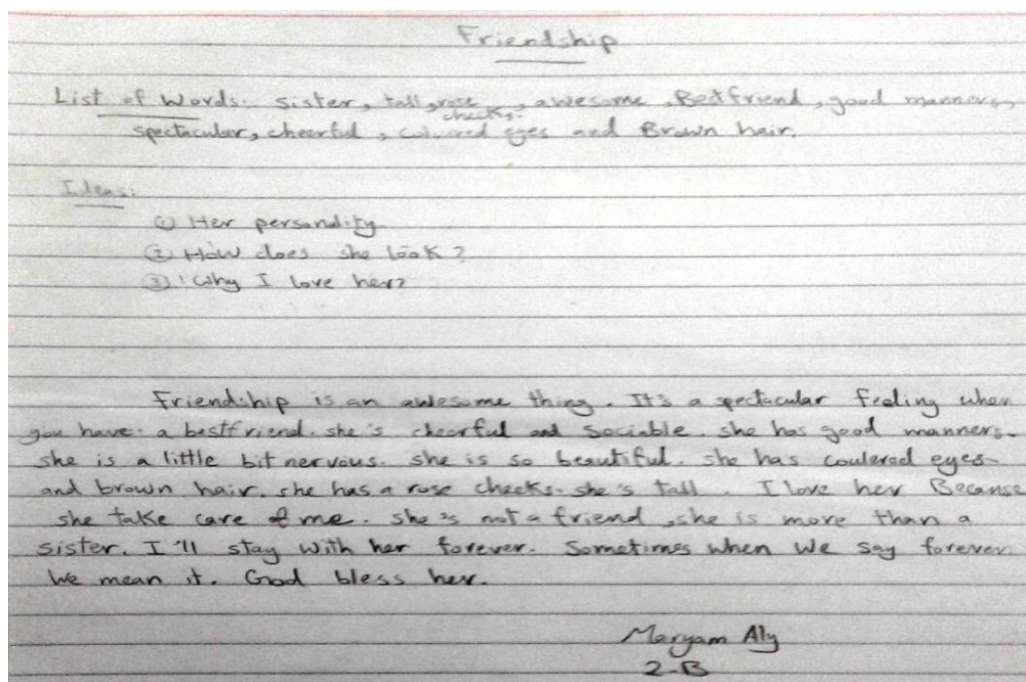 Friendship
List of words: sister, tall, rose cheeks, awesome, Bestfriend, good manners,
spectacular, cheerful, coloured eyes and Brown hair.
Ideas:
① Her personality
② How does she look?
③ Why I love her?
Friendship is an awesome thing. It's a spectacular feeling when
you have a bestfriend. she's cheerful and sociable. she has good manners.
she is a little bit nervous. she is so beautiful. she has coulered eyes
and brown hair. she has a rose cheeks. she's tall. I love her Because
she take care of me. she's not a friend, she is more than a
sister. I'll stay with her forever. Sometimes when we say forever
We mean it. God bless her.
Maryam Aly
2-B